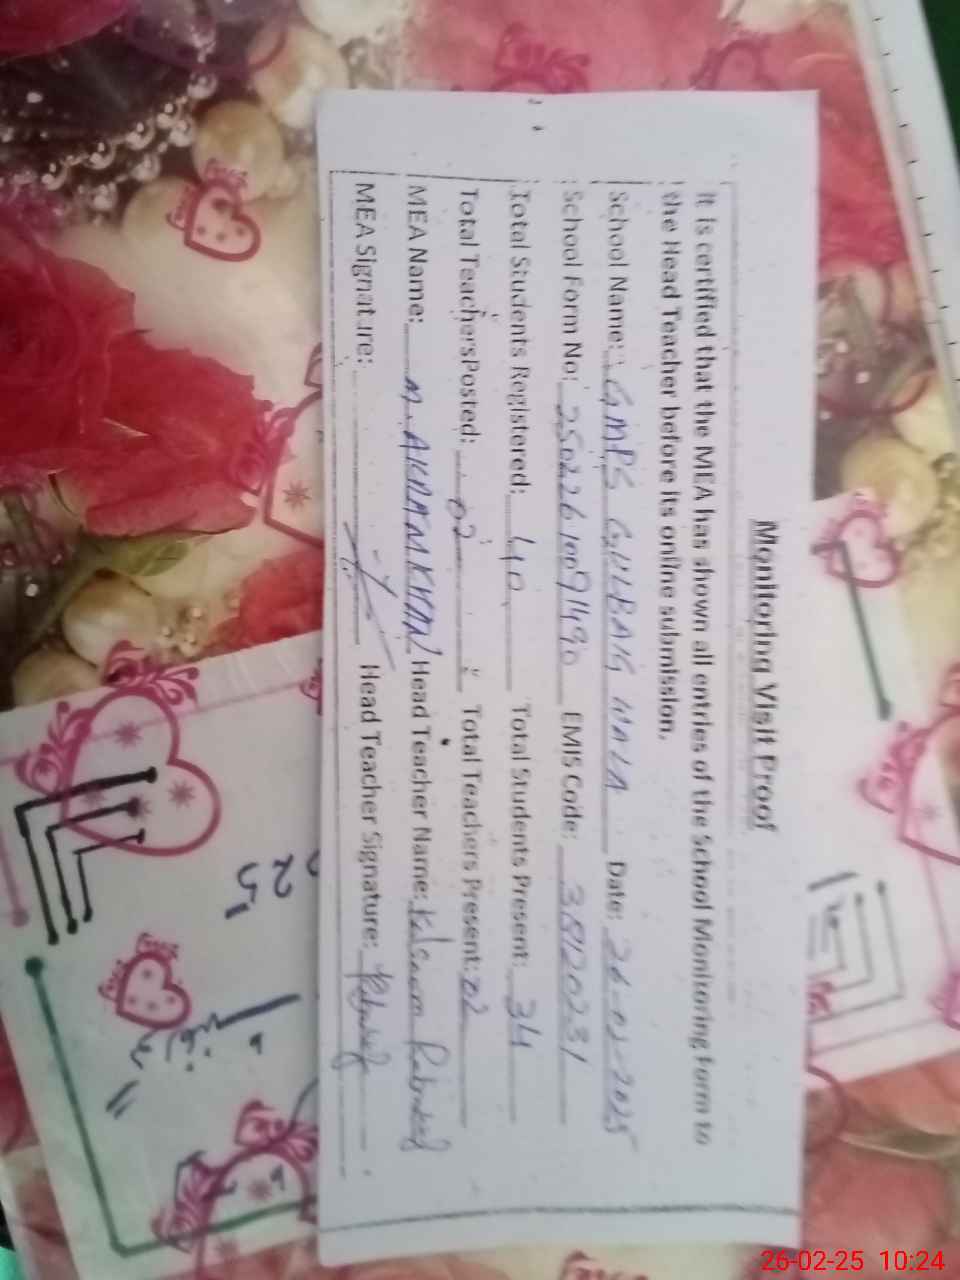 Monitoring Visit Proof
It is certified that the MEA has shown all entries of the School Monitoring Form to
the Head Teacher before its online submission.
School Name: GMPS GULBAIG WALA Date: 26-02-2025
School Form No: EMIS Code: 38120231
Total Students Registered: 40 Total Students Present: 34
Total Teachers Posted: 02 Total Teachers Present: 02
MEA Name: M. AKRAM KHAN Head Teacher Name: Kalsoom
MEA Signature: Head Teacher Signature:
26-02-25 10:24